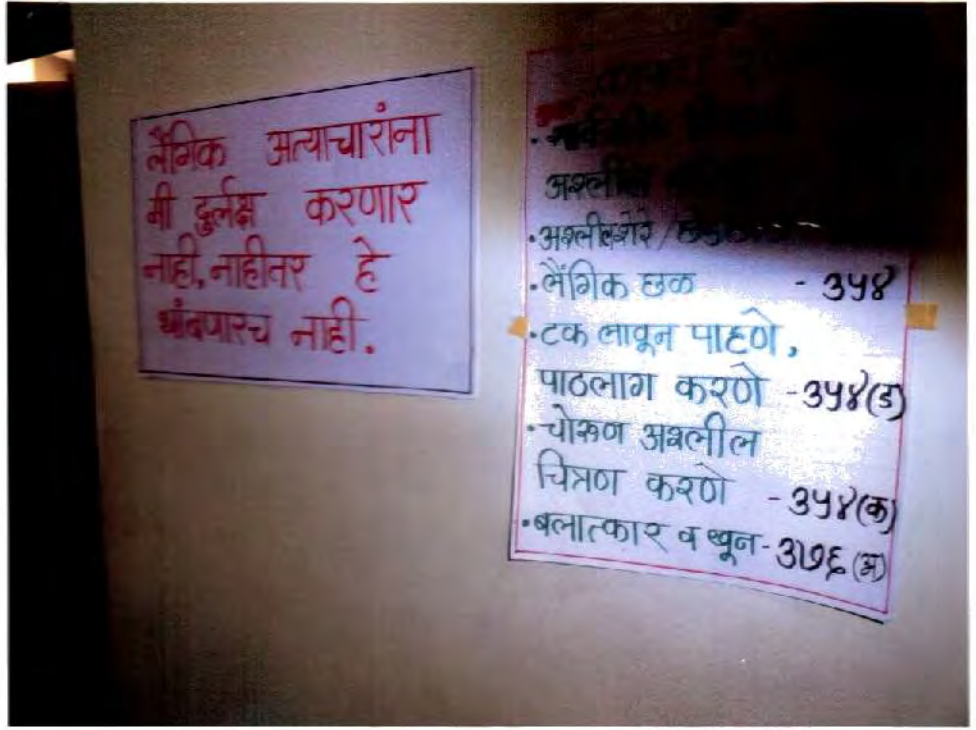 लैंगिक अत्याचारांना
मी दुर्लक्ष करणार
नाही, नाहीतर हे
थांबणारच नाही.
अश्लील
·अश्लीलशेरे /
·लैंगिक छळ - ३५४
·टक लावून पाहणे,
पाठलाग करणे -३५४(ड)
·चोरुण अश्लील
चित्रण करणे -३५४(क)
·बलात्कार व खून-३७६(अ)